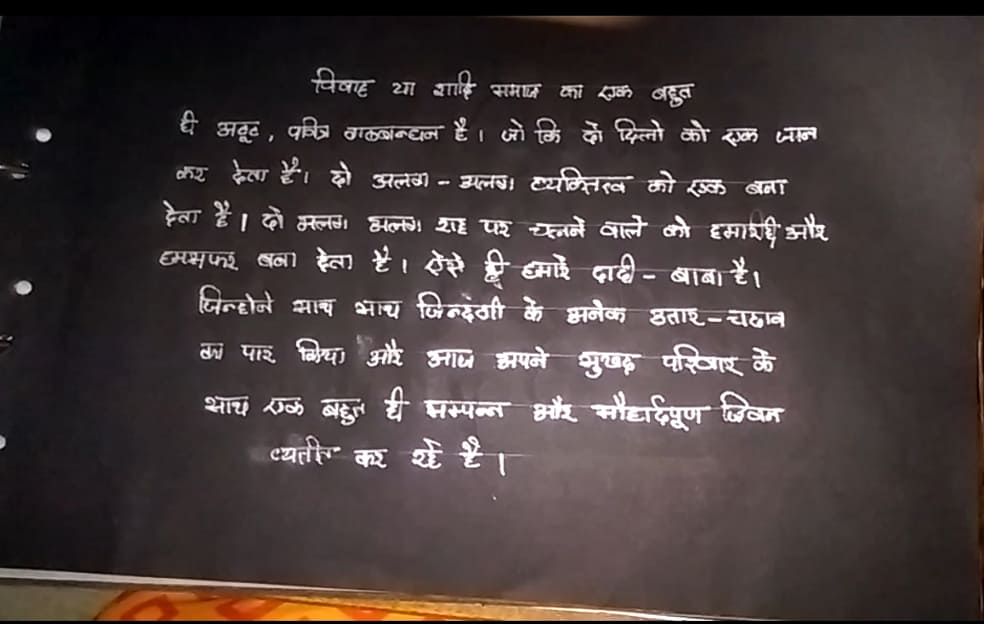 विवाह या शादि समाज का एक बहुत
ही अटूट, पवित्र गठबन्धन है। जो कि दो दिलो को एक जान
कर देता है। दो अलग - अलग व्यक्तित्व को एक बना
देता है। दो अलग अलग राह पर चलने वाले को हमराही और
हमसफर बना देता है। ऐसे ही हमारे दादी - बाबा है।
जिन्होने साथ साथ जिन्दगी के अनेक उतार - चढाव
का पार किया और आज अपने सुखद परिवार के
साथ एक बहुत ही सम्पन्न और सौहार्दपूण जिवन
व्यतीत कर रहे है।